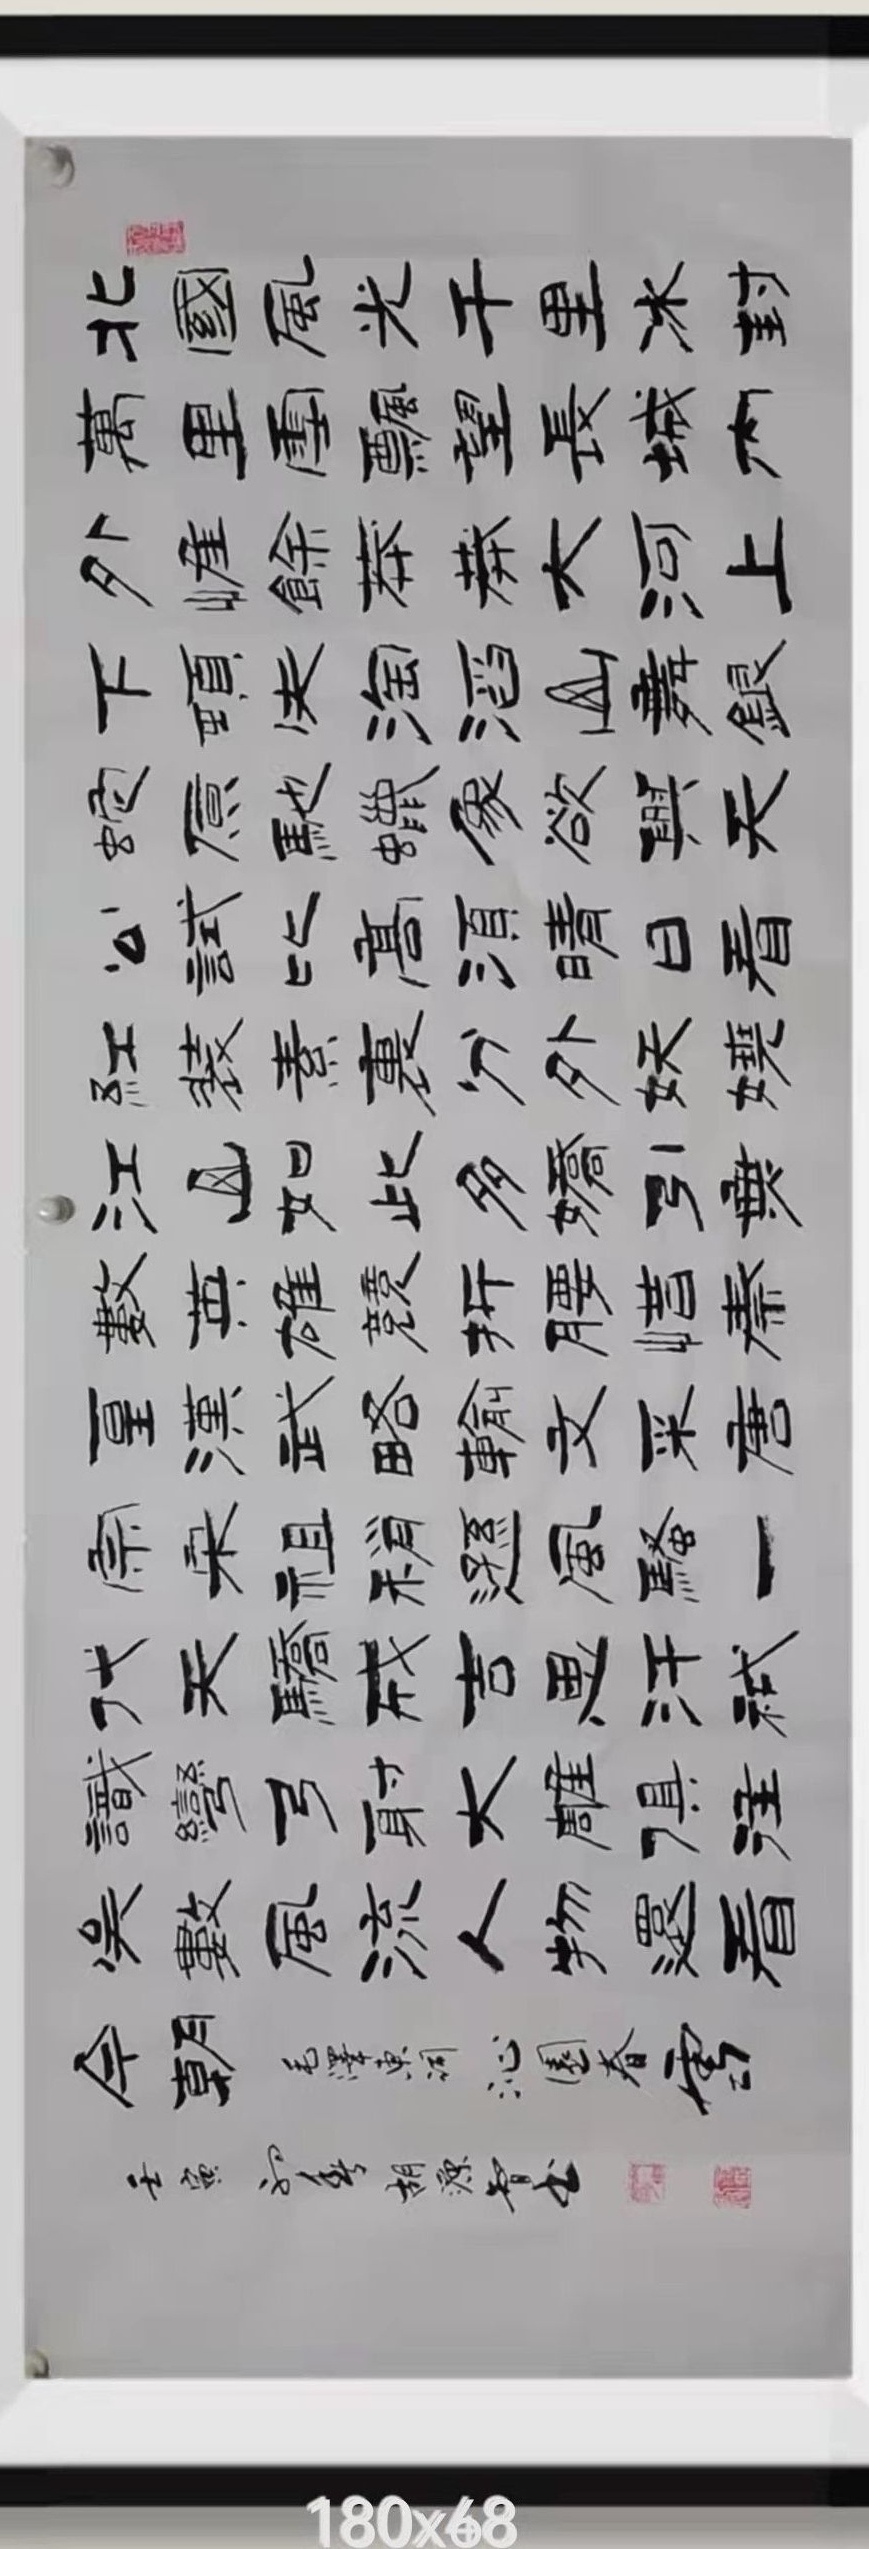 北國風光千里冰封
萬里雪飄望長城內
外惟餘莽莽大河上
下頓失滔滔山舞銀
蛇原馳蠟象欲與天
公試比高須晴日看
紅裝素裹分外妖嬈
江山如此多嬌引無
數英雄競折腰惜秦
皇漢武略輸文采唐
宗宋祖稍遜風騷一
代天驕成吉思汗祗
識彎弓射大雕俱往
矣數風流人物還看
今朝 毛澤東詞 沁園春雪
壬寅 初春 胡源書
180x68